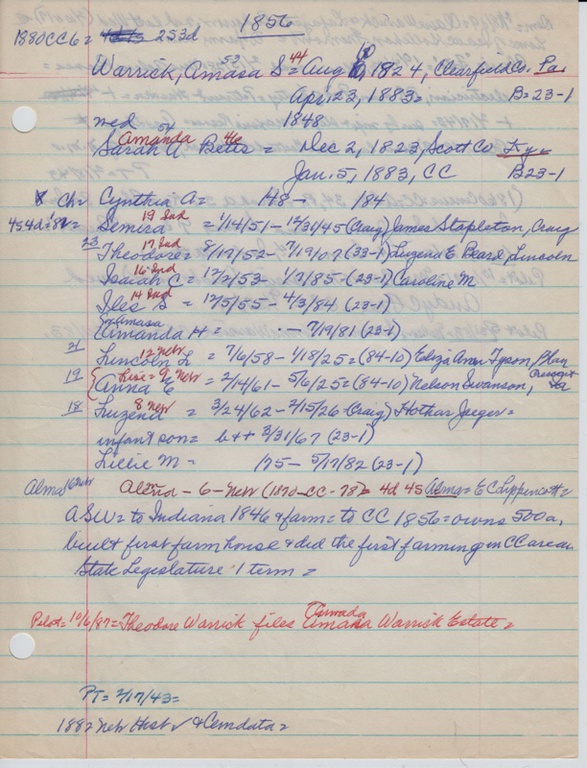 1856
1880CC6= 253d
Warrick, Amasa S = Aug 8, 1824, Clearfield Co. Pa
53 44
Apr. 23, 1883= B=23-1
med 1848
Amanda 46
Sarah A Betts = Dec 2, 1823, Scott Co Ky=
Jan. 5, 1883, CC B23-1
8 Ch= Cynthia A= 148- 184
19 Ind
4s4d=
Semira = 1/14/51- 12/31/45 (Craig) James Stapleton, Craig
17 Ind
23 Theodore= 8/17/52- 7/19/07 (33-1) Luzena E. Beard, Lincoln
16 Ind
Isaiah C = 12/2/53- 1/7/85- (23-1) Caroline M
14 Ind
Iles S = 12/5/55- 4/3/84 (23-1)
Amasa
Amanda H= - 7/19/81 (23-1)
12 Neb
21 Lincoln L = 7/6/58- 1/18/25= (84-10) Eliza Ann Tyson,
9 Neb
19 Anna E = 2/14/61- 5/6/25= (84-10) Nelson Swanson,
8 Neb
18 Luzena = 3/24/62- 2/15/26- (Craig) Hothar Jaeger=
infant son= b+t 3/31/67 (23-1)
Lillie M- 175- 5/17/82 (23-1)
Alma 6 Neb Alena- 6- Neb (1870-CC-78)= 4d 4s Alma= E C Lippincott=
ASW= to Indiana 1846 & farm= to CC 1856= owns 500a,
built first farm house & did the first farming in CC area
State Legislature 1 term=
Pilot= 10/6/87= Theodore Warrick files Amana Warrick Estate=
PT= 2/17/43=
1882 Neb Hist ✓ & Cemdata=